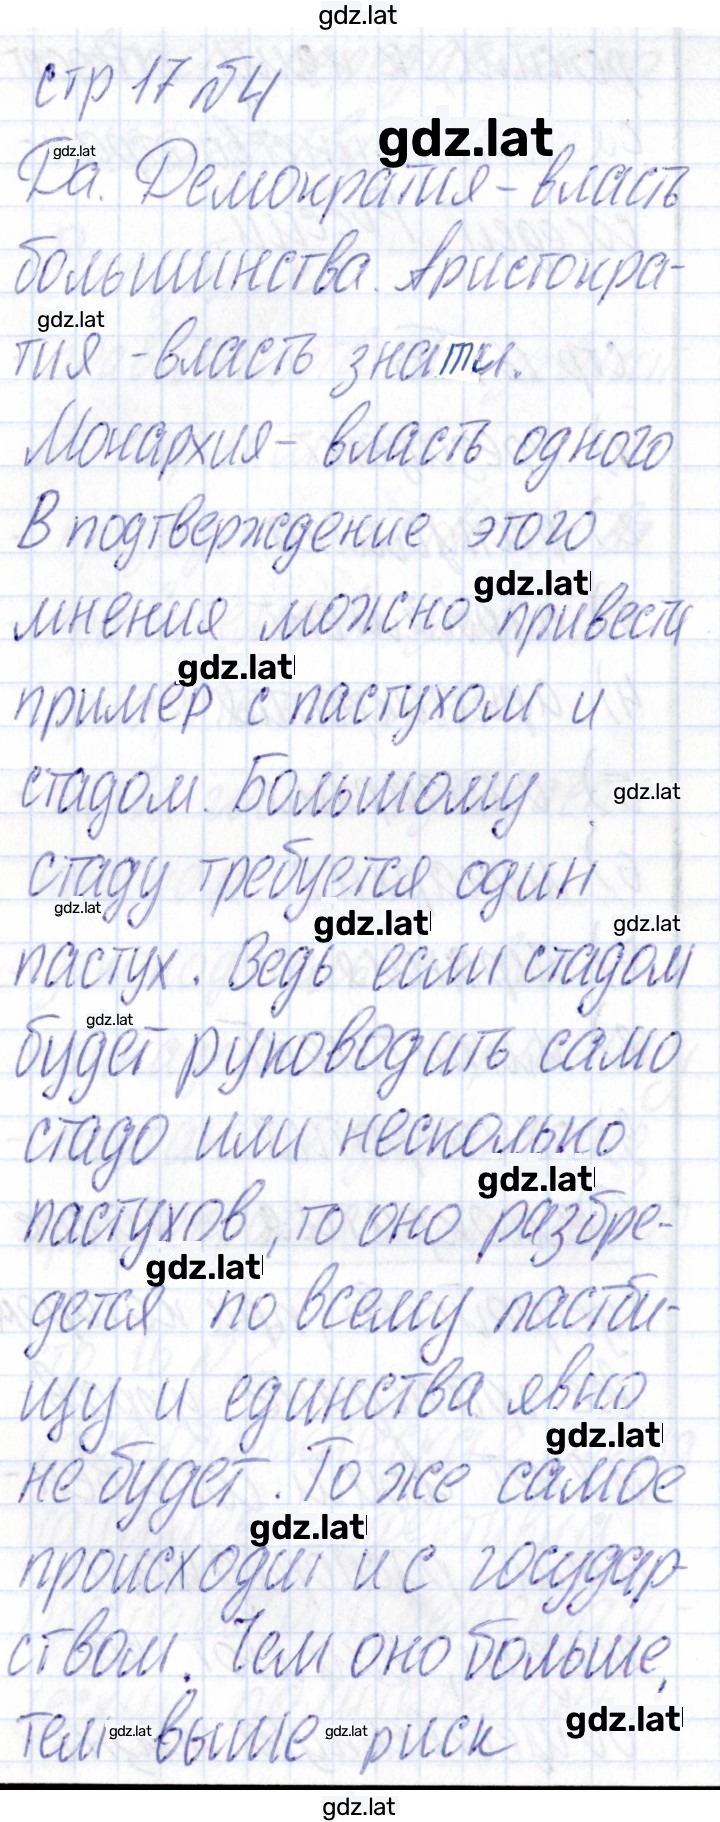 gdz.lat
стр 17 №4
gdz.lat
gdz.lat
Да. Демократия - власть
большинства. Аристокра-
gdz.lat
тия - власть знати.
Монархия - власть одного
В подтверждение этого
gdz.lat
мнения можно привести
gdz.lat
пример с пастухом и
стадом. Большому
gdz.lat
стаду требуется один
gdz.lat
gdz.lat
gdz.lat
пастух. Ведь если стадом
gdz.lat
будет руководить само
стадо или несколько
gdz.lat
пастухов, то оно разбре-
gdz.lat
дется по всему пастби-
щу и единства явно
gdz.lat
не будет. То же самое
gdz.lat
происходит и с государ-
ством. Чем оно больше,
gdz.lat
тем gdz.lat выше gdz.lat риск
gdz.lat